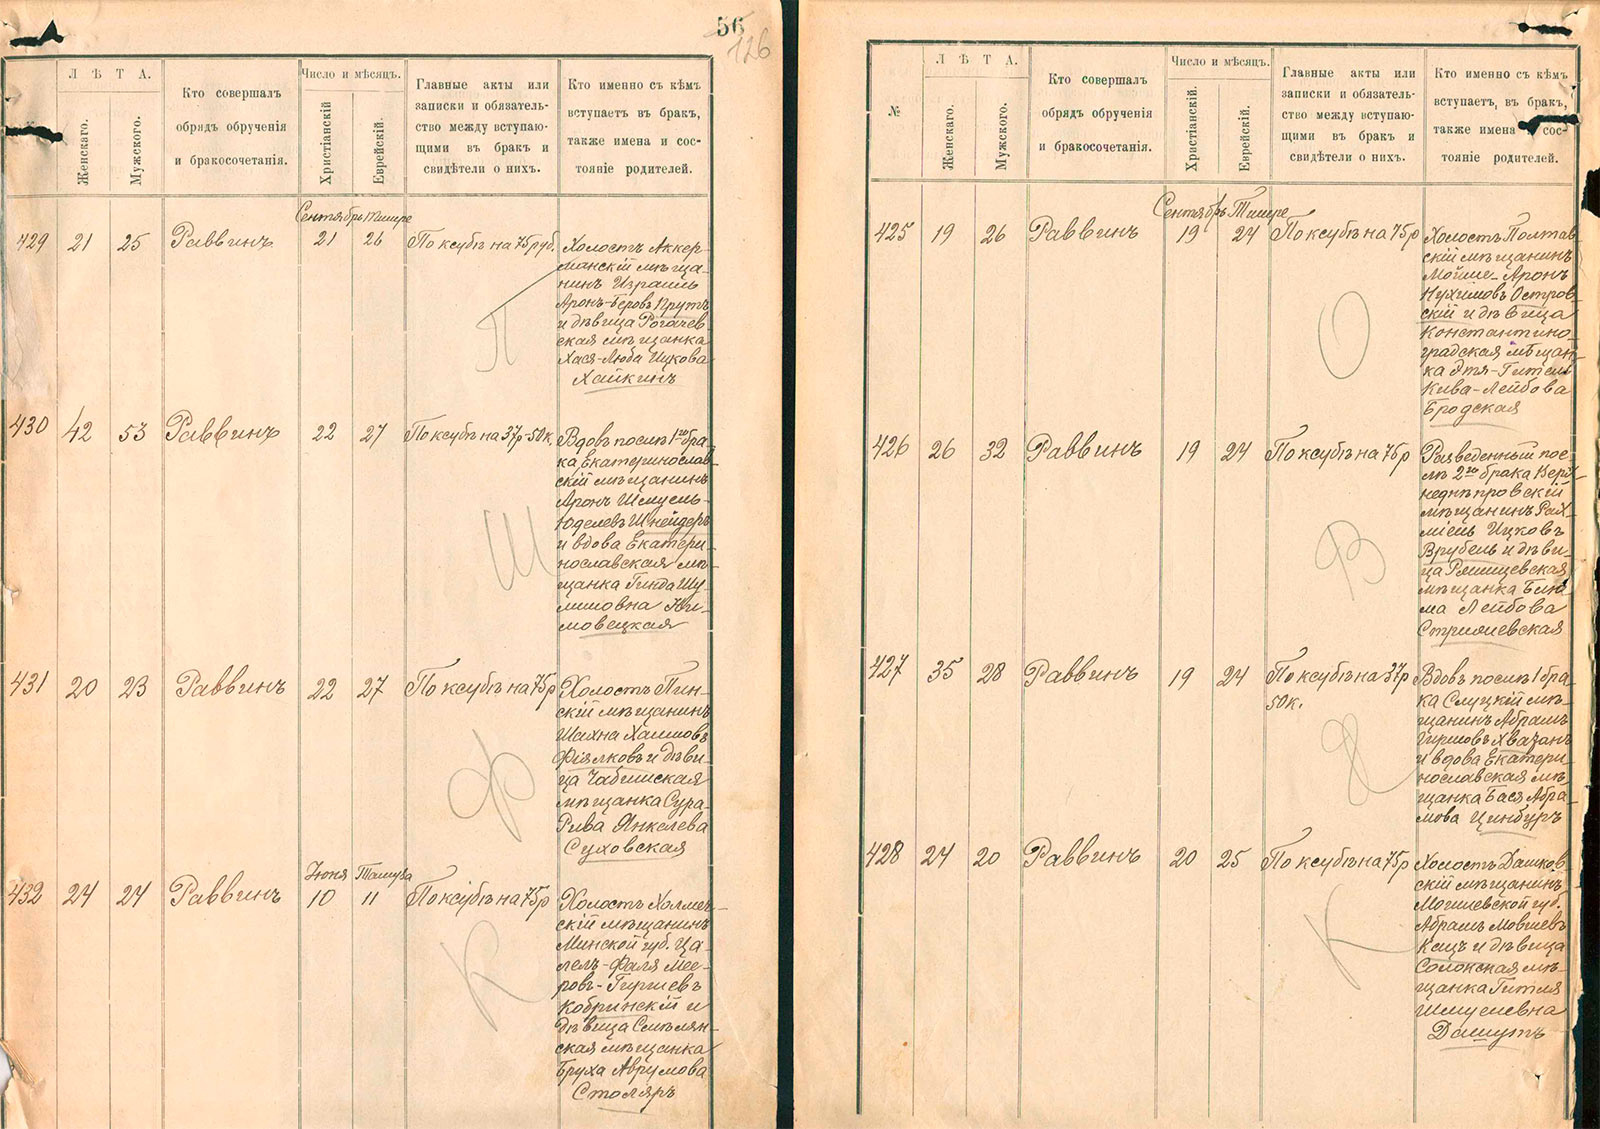 56
126
Л Ѣ Т А.
Женскаго.
Мужского.
Кто совершалъ
обрядъ обрученія
и бракосочетанія.
Число и мѣсяцъ.
Христіанскій
Еврейскій.
Главные акты или
записки и обязатель-
ство между вступаю-
щими въ бракъ и
свидѣтели о нихъ.
Кто именно съ кѣмъ
вступаетъ въ бракъ,
также имена и сос-
тояніе родителей.
Сентябрь Тишре
429 21 25 Раввинъ 21 26 По ксубѣ на 75 руб.
Холостъ Аккер-
манскій мѣща-
нинъ Израиль
Аронъ-Беровъ Прутъ
и дѣвица Рогачев-
ская мѣщанка
Хася-Люба Ицкова
Хайкинъ
П
430 42 53 Раввинъ 22 27 По ксубѣ на 37р-50к.
Вдовъ послѣ 1го бра-
ка Екатеринослав-
скій мѣщанинъ
Аронъ Шмуель-
Юделевъ Шнейдеръ
и вдова Екатери-
нославская мѣ-
щанка Гинда Шу-
лимовна
Ш
431 20 23 Раввинъ 22 27 По ксубѣ на 75р
Холостъ Пин-
скій мѣщанинъ
Шахна Хаимовъ
Фіялковъ и дѣви-
ца
мѣщанка Сура-
Рива Янкелева
Суховская
Ф
Іюня Тамуза
432 24 24 Раввинъ 10 11 По ксубѣ на 75р
Холостъ Холмеч-
скій мѣщанинъ
Минской губ. Ца-
лелъ-Фаля Мее-
ровъ-Гиршевъ
Кобринскій и
дѣвица Смѣлян-
ская мѣщанка
Бруха Аврумова
Столяръ
К
№
Л Ѣ Т А.
Женскаго.
Мужского.
Кто совершалъ
обрядъ обрученія
и бракосочетанія.
Число и мѣсяцъ.
Христіанскій.
Еврейскій.
Главные акты или
записки и обязатель-
ство между вступаю-
щими въ бракъ и
свидѣтели о нихъ.
Кто именно съ кѣмъ
вступаетъ, въ бракъ,
также имена и сос-
тояніе родителей.
Сентябрь Тишре
425 19 26 Раввинъ 19 24 По ксубѣ на 75р
Холостъ Полтав-
скій мѣщанинъ
Мойше-Аронъ
Нухимовъ Остров-
скій и дѣвица
Константино-
градская мѣщан-
ка Этя-Гитель
Кива-Лейбова
Бродская
О
426 26 32 Раввинъ 19 24 По ксубѣ на 75р
Разведенный пос-
лѣ 2го брака Верх-
неднѣпровскій
мѣщанинъ Рах-
міель Ицковъ
Врубель и дѣви-
ца
мѣщанка
ма Лейбова
В
427 35 28 Раввинъ 19 24 По ксубѣ на 37р
50к.
Вдовъ послѣ 1 бра-
ка Слуцкій мѣ-
щанинъ Абрамъ
Гиршовъ Хвазанъ
и вдова Екатери-
нославская мѣ-
щанка Бася Абра-
мова Цинбуръ
Х
428 24 20 Раввинъ 20 25 По ксубѣ на 75р
Холостъ Дашков-
скій мѣщанинъ
Могилевской губ.
Абрамъ Мовшевъ
Кацъ и дѣвица
Солокская мѣ-
щанка Гитля
Шмуелевна
Дашутъ
К